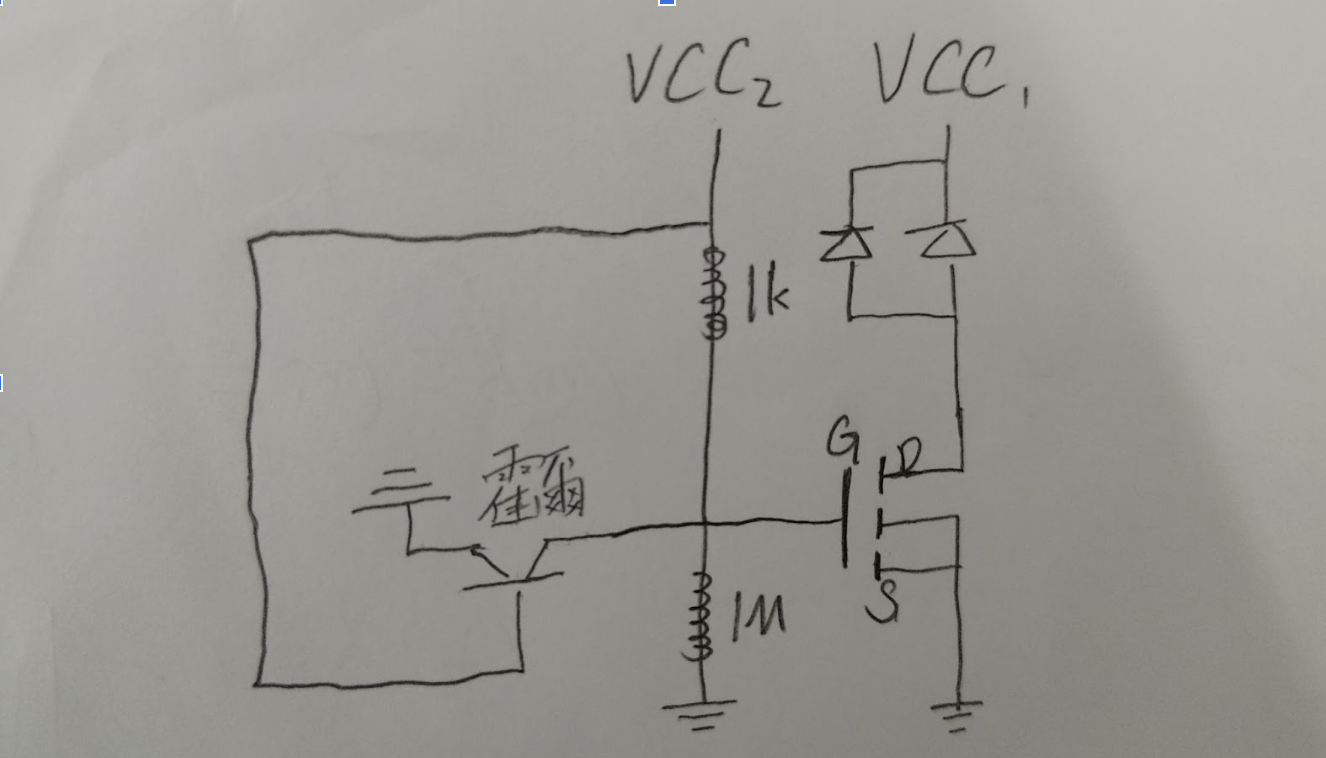 VCC₂
VCC₁
1k
G
D
霍爾
S
1M